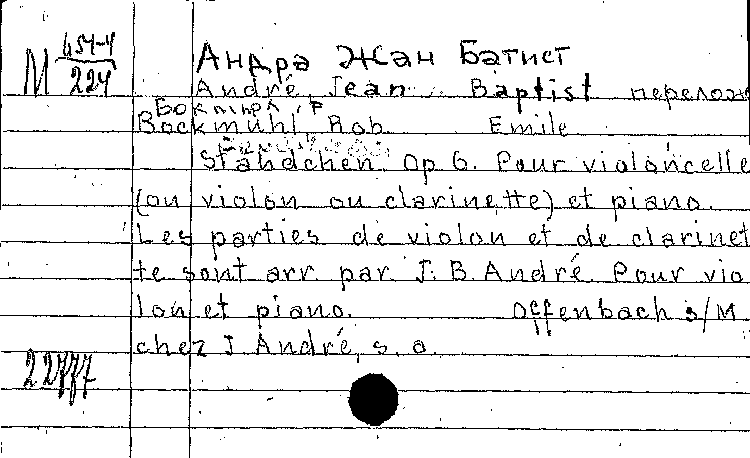 М 454-4/224
Андрэ Жан Батист
André, Jean Baptist перелож
Бокмюл, Р
Bockmühl, Rob. Emile
Ständchen Op 6. Pour violoncelle
(ou violon ou clarinette) et piano.
Les parties de violon et de clarinet
te sont arr. par J. B. André. Pour vio
lon et piano. Offenbach s/M
chez J. André, s. a.
22777